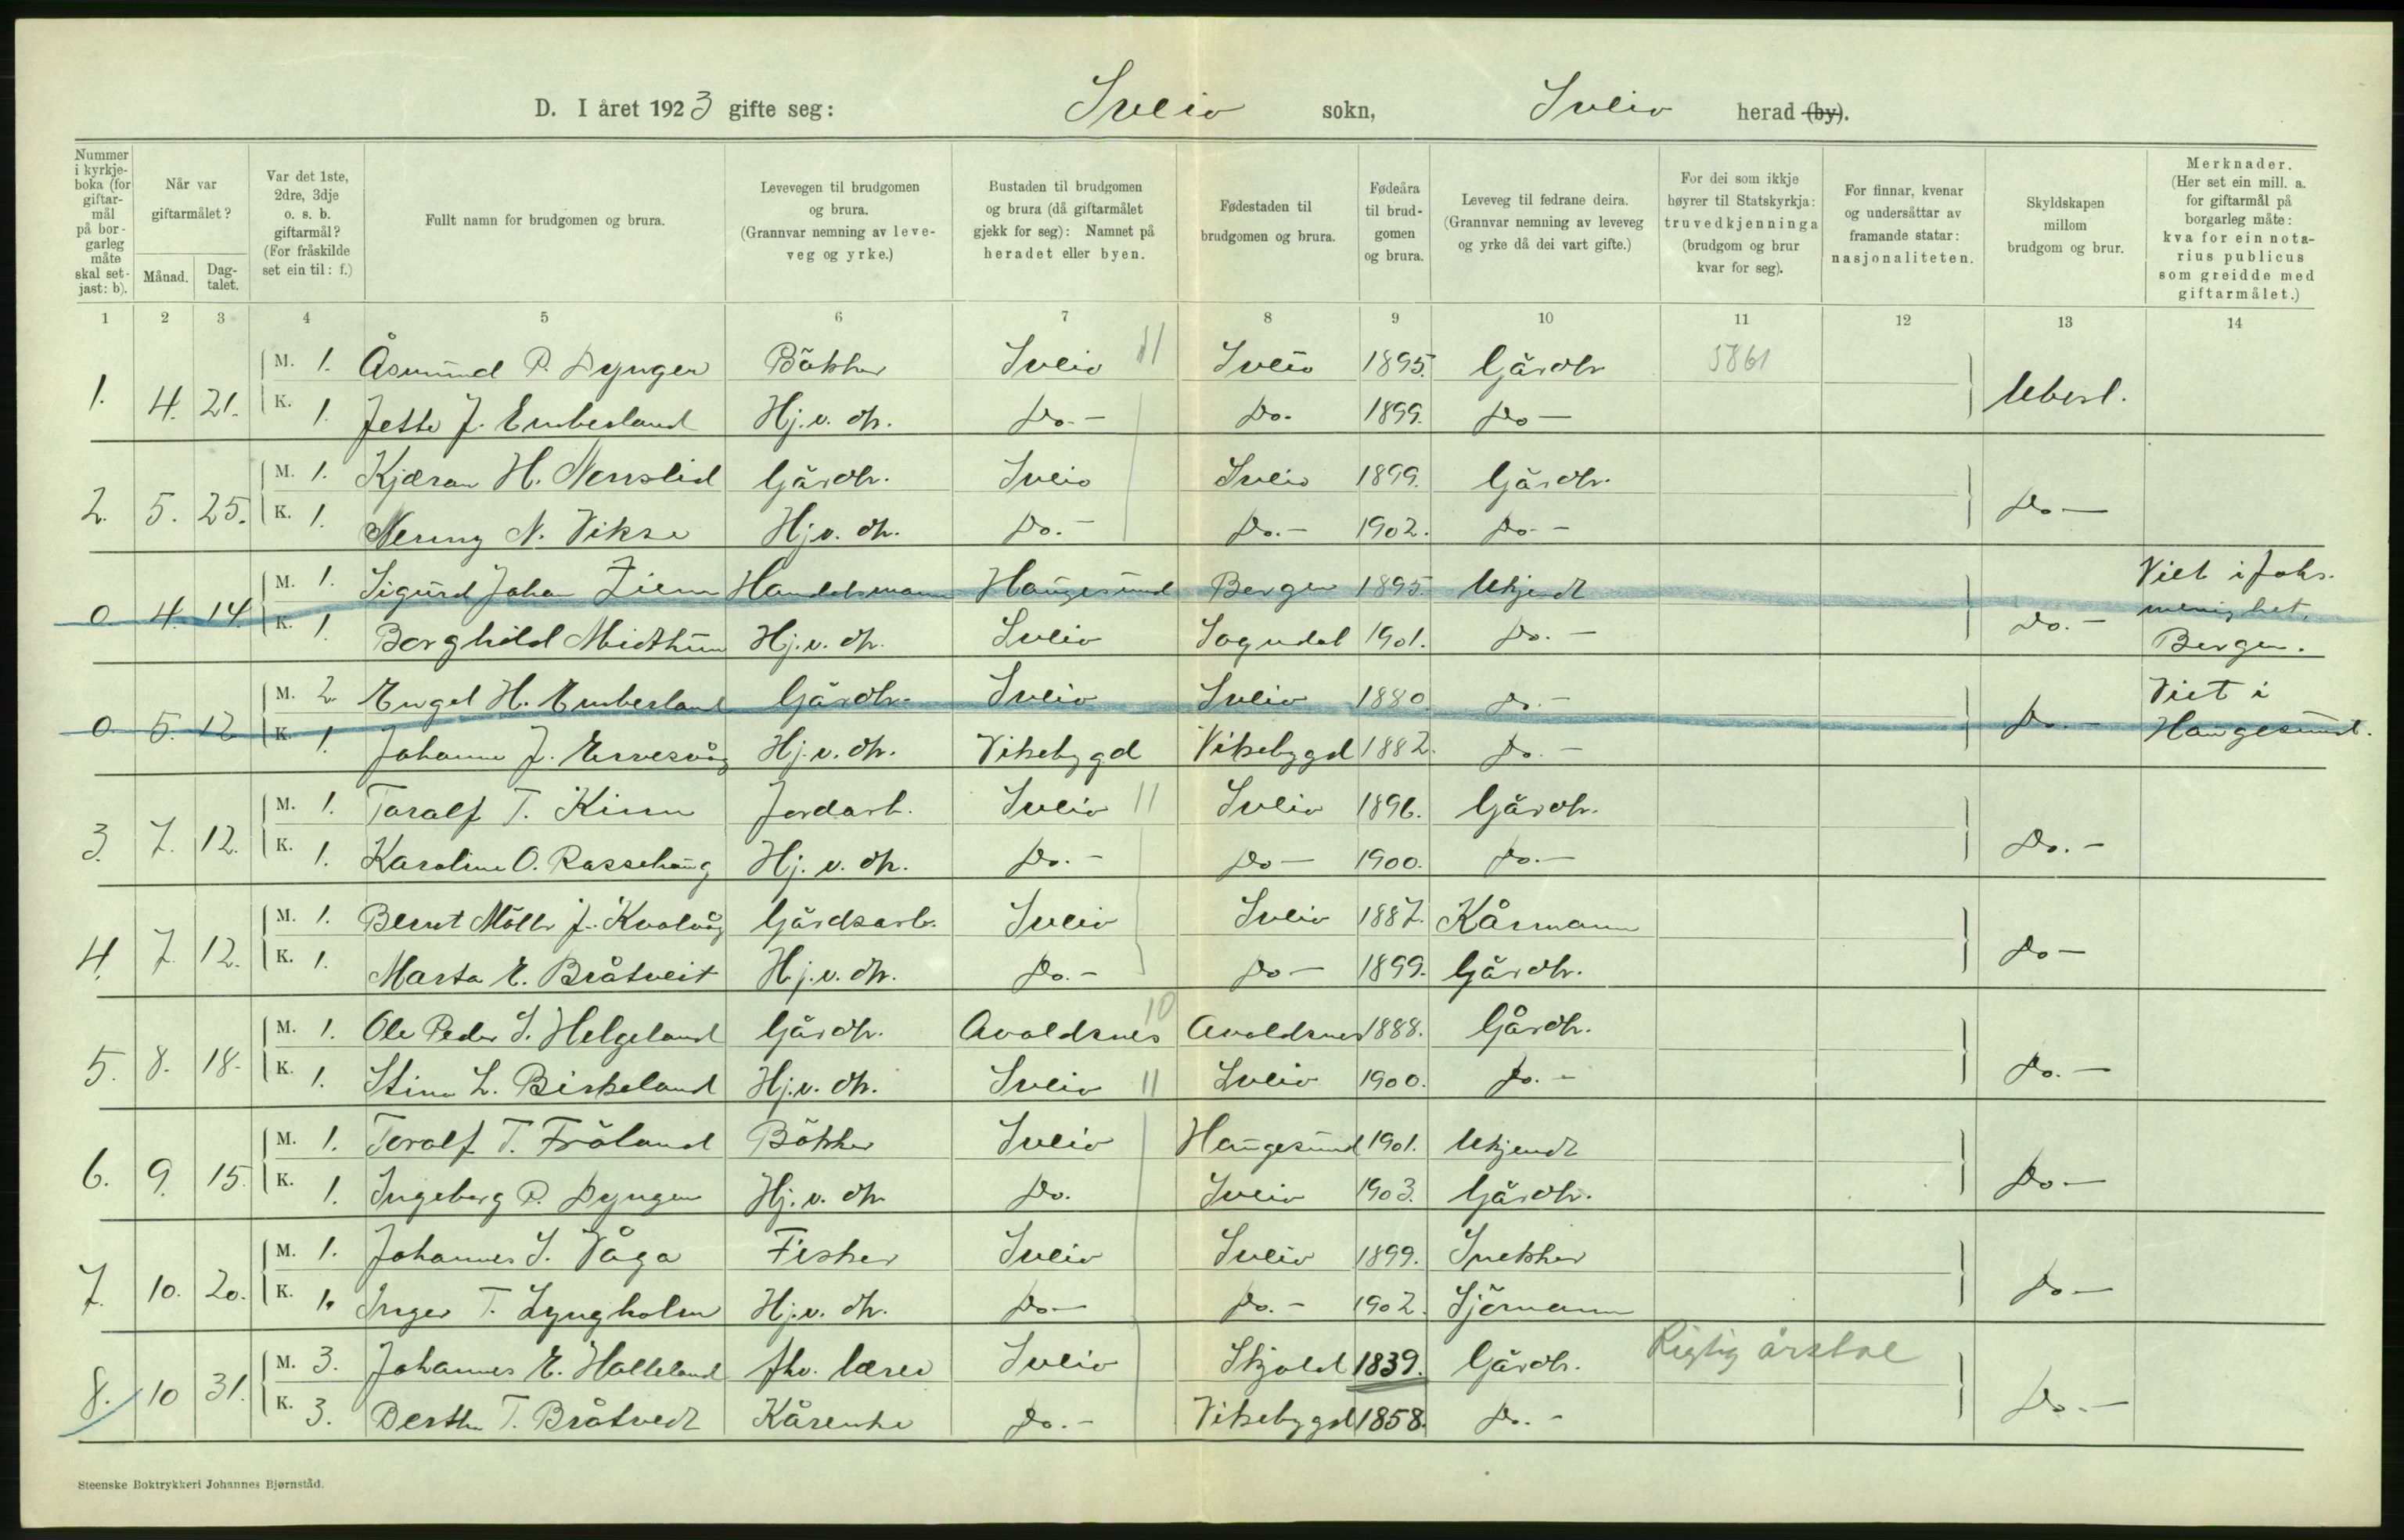 D. I året 1923 gifte seg: Sveio sokn, Sveio herad (by).
Nummer i kyrkjeboka (for giftarmål på borgarleg måte skal setjast: b).
Når var giftarmålet?
Månad. Dagtalet.
Var det 1ste, 2dre, 3dje o. s. b. giftarmål? (For fråskilde set ein til: f.)
Fullt namn for brudgomen og brura.
Levevegen til brudgomen og brura. (Grannvar nemning av leveveg og yrke.)
Bustaden til brudgomen og brura (då giftarmålet gjekk for seg): Namnet på heradet eller byen.
Fødestaden til brudgomen og brura.
Fødeåra til brudgomen og brura.
Leveveg til fedrane deira. (Grannvar nemning av leveveg og yrke då dei vart gifte.)
For dei som ikkje høyrer til Statskyrkja: truvedkjenninga (brudgom og brur kvar for seg).
For finnar, kvenar og undersåttar av framande statar: nasjonaliteten.
Skyldskapen millom brudgom og brur.
Merknader. (Her set ein mill. a. for giftarmål på borgarleg måte: kva for ein notarius publicus som greidde med giftarmålet.)
1 2 3 4 5 6 7 8 9 10 11 12 13 14
1. 4. 21. M. 1. Åsmund P. Dyngen Bökker Sveio 11 Sveio 1895. Gårdbr. 5861 Ubesl.
K. 1. Jette J. Emberland Hj. v. dr. Do.- Do. 1899. Do-
2. 5. 25. M. 1. Kjæran H. Norrslid Gårdbr. Sveio Sveio 1899. Gårdbr. Do-
K. 1. Nenny N. Vikse Hj.v. dr. Do.- Do.- 1902. Do.-
0 4. 14. M. 1. Sigurd Johan Ziem Handelsmann Haugesund Bergen 1895. Ukjendt Do.- Viet i Johs.
menighet,
K. 1. Borghild Midthun Hj.v. dr. Sveio Sogndal 1901. Do.- Bergen.
0. 5. 12 M. 2. Engel H. Emberland Gårdbr. Sveio Sveio 1880. Do.- Do.- Viet i
K. 1. Johanne J. Ervesvåg Hj.v. dr. Vikebygd Vikebygd 1882. Do.- Haugesund.
3. 7. 12. M. 1. Toralf T. Kinn Jordarb. Sveio 11 Sveio 1896. Gårdbr. Do.-
K. 1. Karoline O. Rossehaug Hj. v. dr. Do.- Do- 1900. Do.-
4. 7. 12. M. 1. Bernt Möller J. Kvalvåg Gårdsarb. Sveio Sveio 1887. Kårmann Do-
K. 1. Marta E. Bråtveit Hj.v. dr. Do.- Do- 1899. Gårdbr.
5. 8. 18. M. 1. Ole Peder S. Helgeland Gårdbr. Avaldsnes 10 Avaldsnes 1888. Gårdbr. Do.-
K. 1. Stina L. Birkeland Hj.v. dr. Sveio 11 Sveio 1900. Do.-
6. 9. 15. M. 1. Toralf T. Fröland Bökker Sveio Haugesund 1901. Ukjendt Do-
K. 1. Ingeborg P. Dyngen Hj. v. dr. Do. Sveio 1903. Gårdbr.
7. 10. 20. M. 1. Johannes S. Våga Fisker Sveio Sveio 1899. Snekker Do-
K. 1. Inger T. Lyngholm Hj.v. dr. Do- Do.- 1902. Sjömann
8. 10 31. M. 3. Johannes E. Halleland fhv. lærer Sveio Skjold 1839. Gårdbr. Rigtig årstal Do.-
K. 3. Berthe T. Bråtvedt Kårenke Do.- Vikebygd 1858. Do.-
Steenske Boktrykkeri Johannes Bjørnstad.